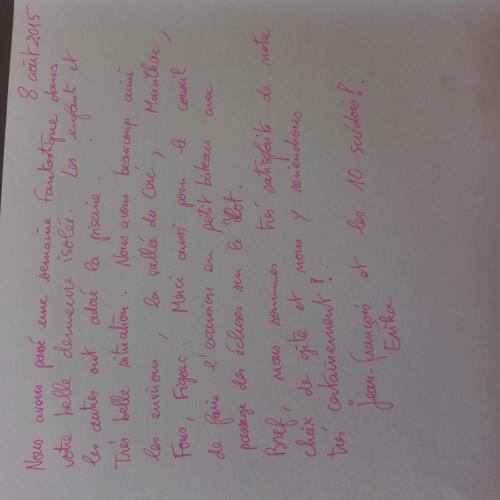 8 août 2015
Nous avons passé une semaine fantastique dans
votre belle demeure isolée. Les enfants et
les autres ont adoré la piscine.
Très belle situation. Nous avons beaucoup aimé
les environs, la vallée du Céré, Maurilhac,
Fons, Figeac. Merci aussi pour le conseil
de faire l'excursion en petit bateau avec
passage des écluses sur le Lot.
Bref, nous sommes très satisfaits de notre
choix de gîte et nous y reviendrons
très certainement!
Jean-François et les 10 suédois!
Erika